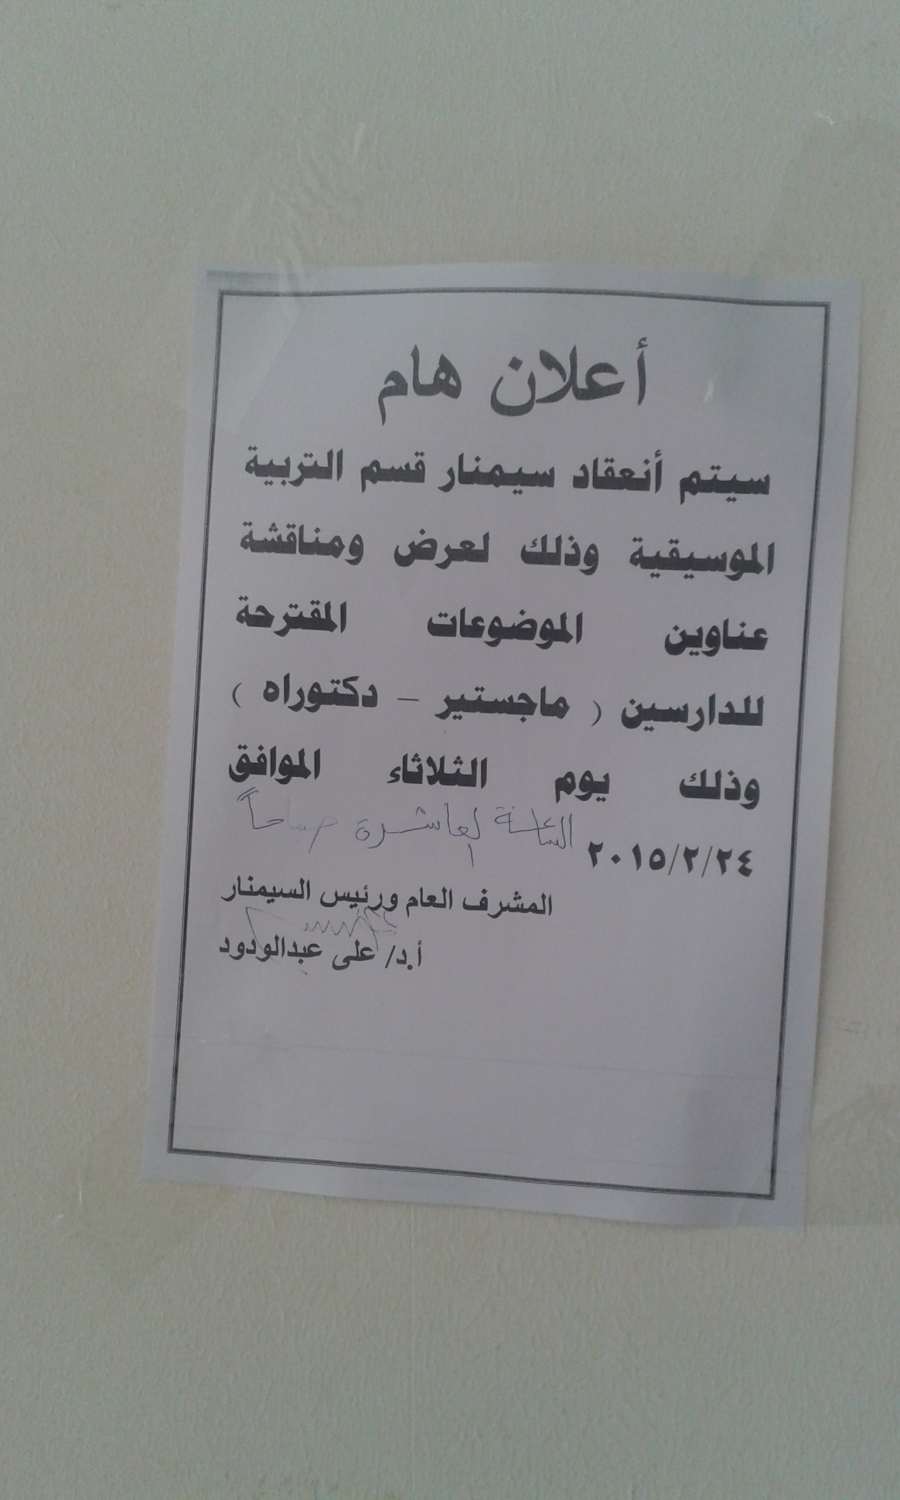 أعلان هام
سيتم أنعقاد سيمنار قسم التربية
الموسيقية وذلك لعرض ومناقشة
عناوين الموضوعات المقترحة
للدارسين ( ماجستير – دكتوراه )
وذلك يوم الثلاثاء الموافق
٢٠١٥/٢/٢٤ الساعة العاشرة صباحاً
المشرف العام ورئيس السيمنار
أ.د/ على عبدالودود